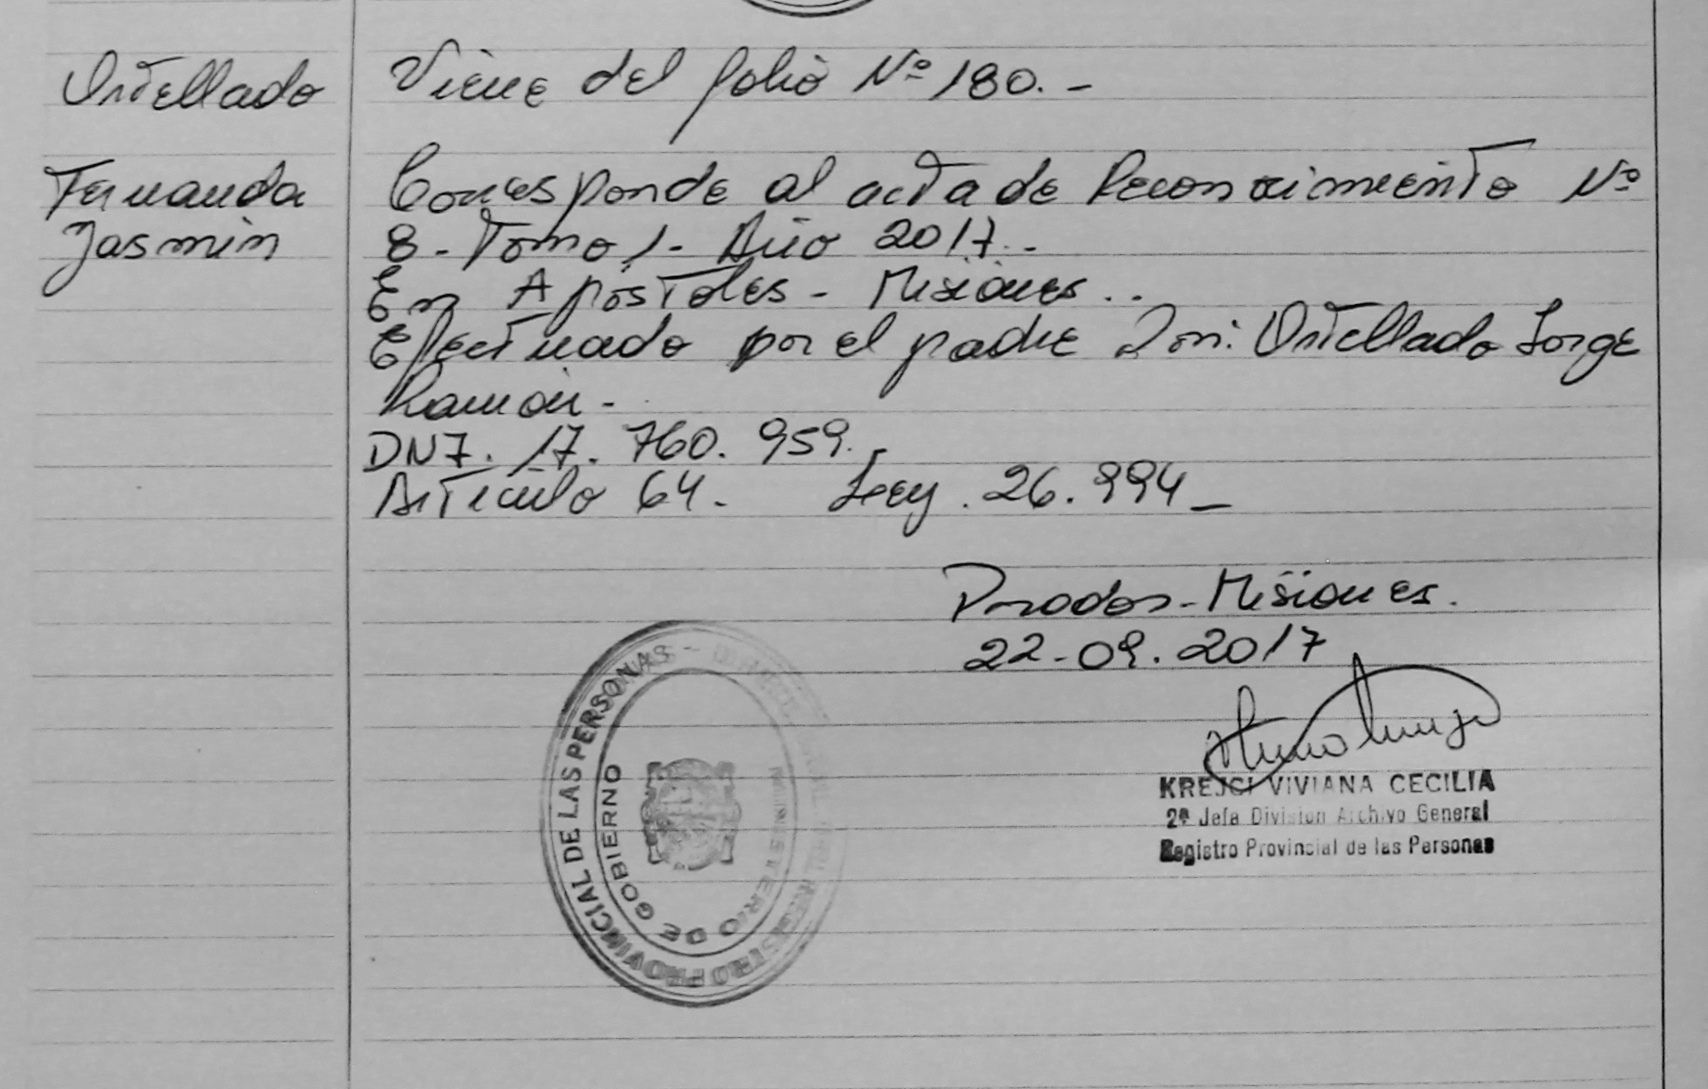 Ortellado
Viene del folio Nº 180.-
Fernanda
Jasmin
Corresponde al acta de Reconocimiento Nº
8- Tomo 1- Año 2017.-
En Apóstoles - Misiones..
Efectuado por el padre Don: Ortellado Jorge
Ramón-
DNI. 17. 760. 959.-
Artículo 64. Ley. 26.994-
Posadas-Misiones.
22-09.2017
KREJCI VIVIANA CECILIA
2ª Jefa Division Archivo General
Registro Provincial de las Personas
REGISTRO PROVINCIAL DE LAS PERSONAS -
MINISTERIO DE GOBIERNO